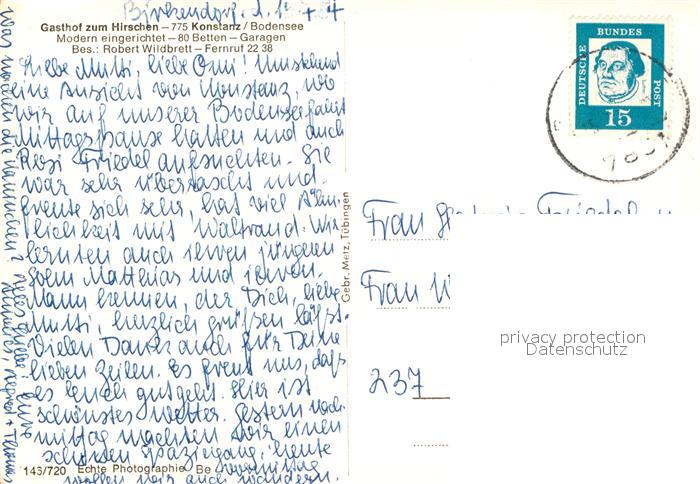 Birkendorf, d.
Gasthof zum Hirschen – 775 Konstanz / Bodensee
Modern eingerichtet – 80 Betten – Garagen
Bes.: Robert Wildbrett – Fernruf 22 38
Liebe Mutti, liebe Omi! Umstehend
eine Ansicht von Konstanz, wo
wir auf unserer Bodenseefahrt
Mittagspause hatten und auch
Rosi Friedel aufsuchten. Sie
war sehr überrascht und
freute sich sehr, hat viel Ähn-
lichkeit mit Waltraud. Wir
lernten auch ihren jüngeren
Sohn Matthias und ihren
Mann kennen, der Dich, liebe
Mutti, herzlich grüßen läßt.
Vielen Dank auch für Deine
lieben Zeilen. Es freut uns, daß
es Euch gutgeht. Hier ist
schönstes Wetter. Gestern nach-
mittag machten wir einen
schönen Spaziergang, heute
vormittag
wollen wir auch wandern.
143/720 Echte Photographie Be
Was machen die Kaninchen? Alles Liebe! Eure
+ Thomas
Gebr. Metz, Tübingen
DEUTSCHE BUNDES POST
15
Frau
Frau
237
privacy protection
Datenschutz